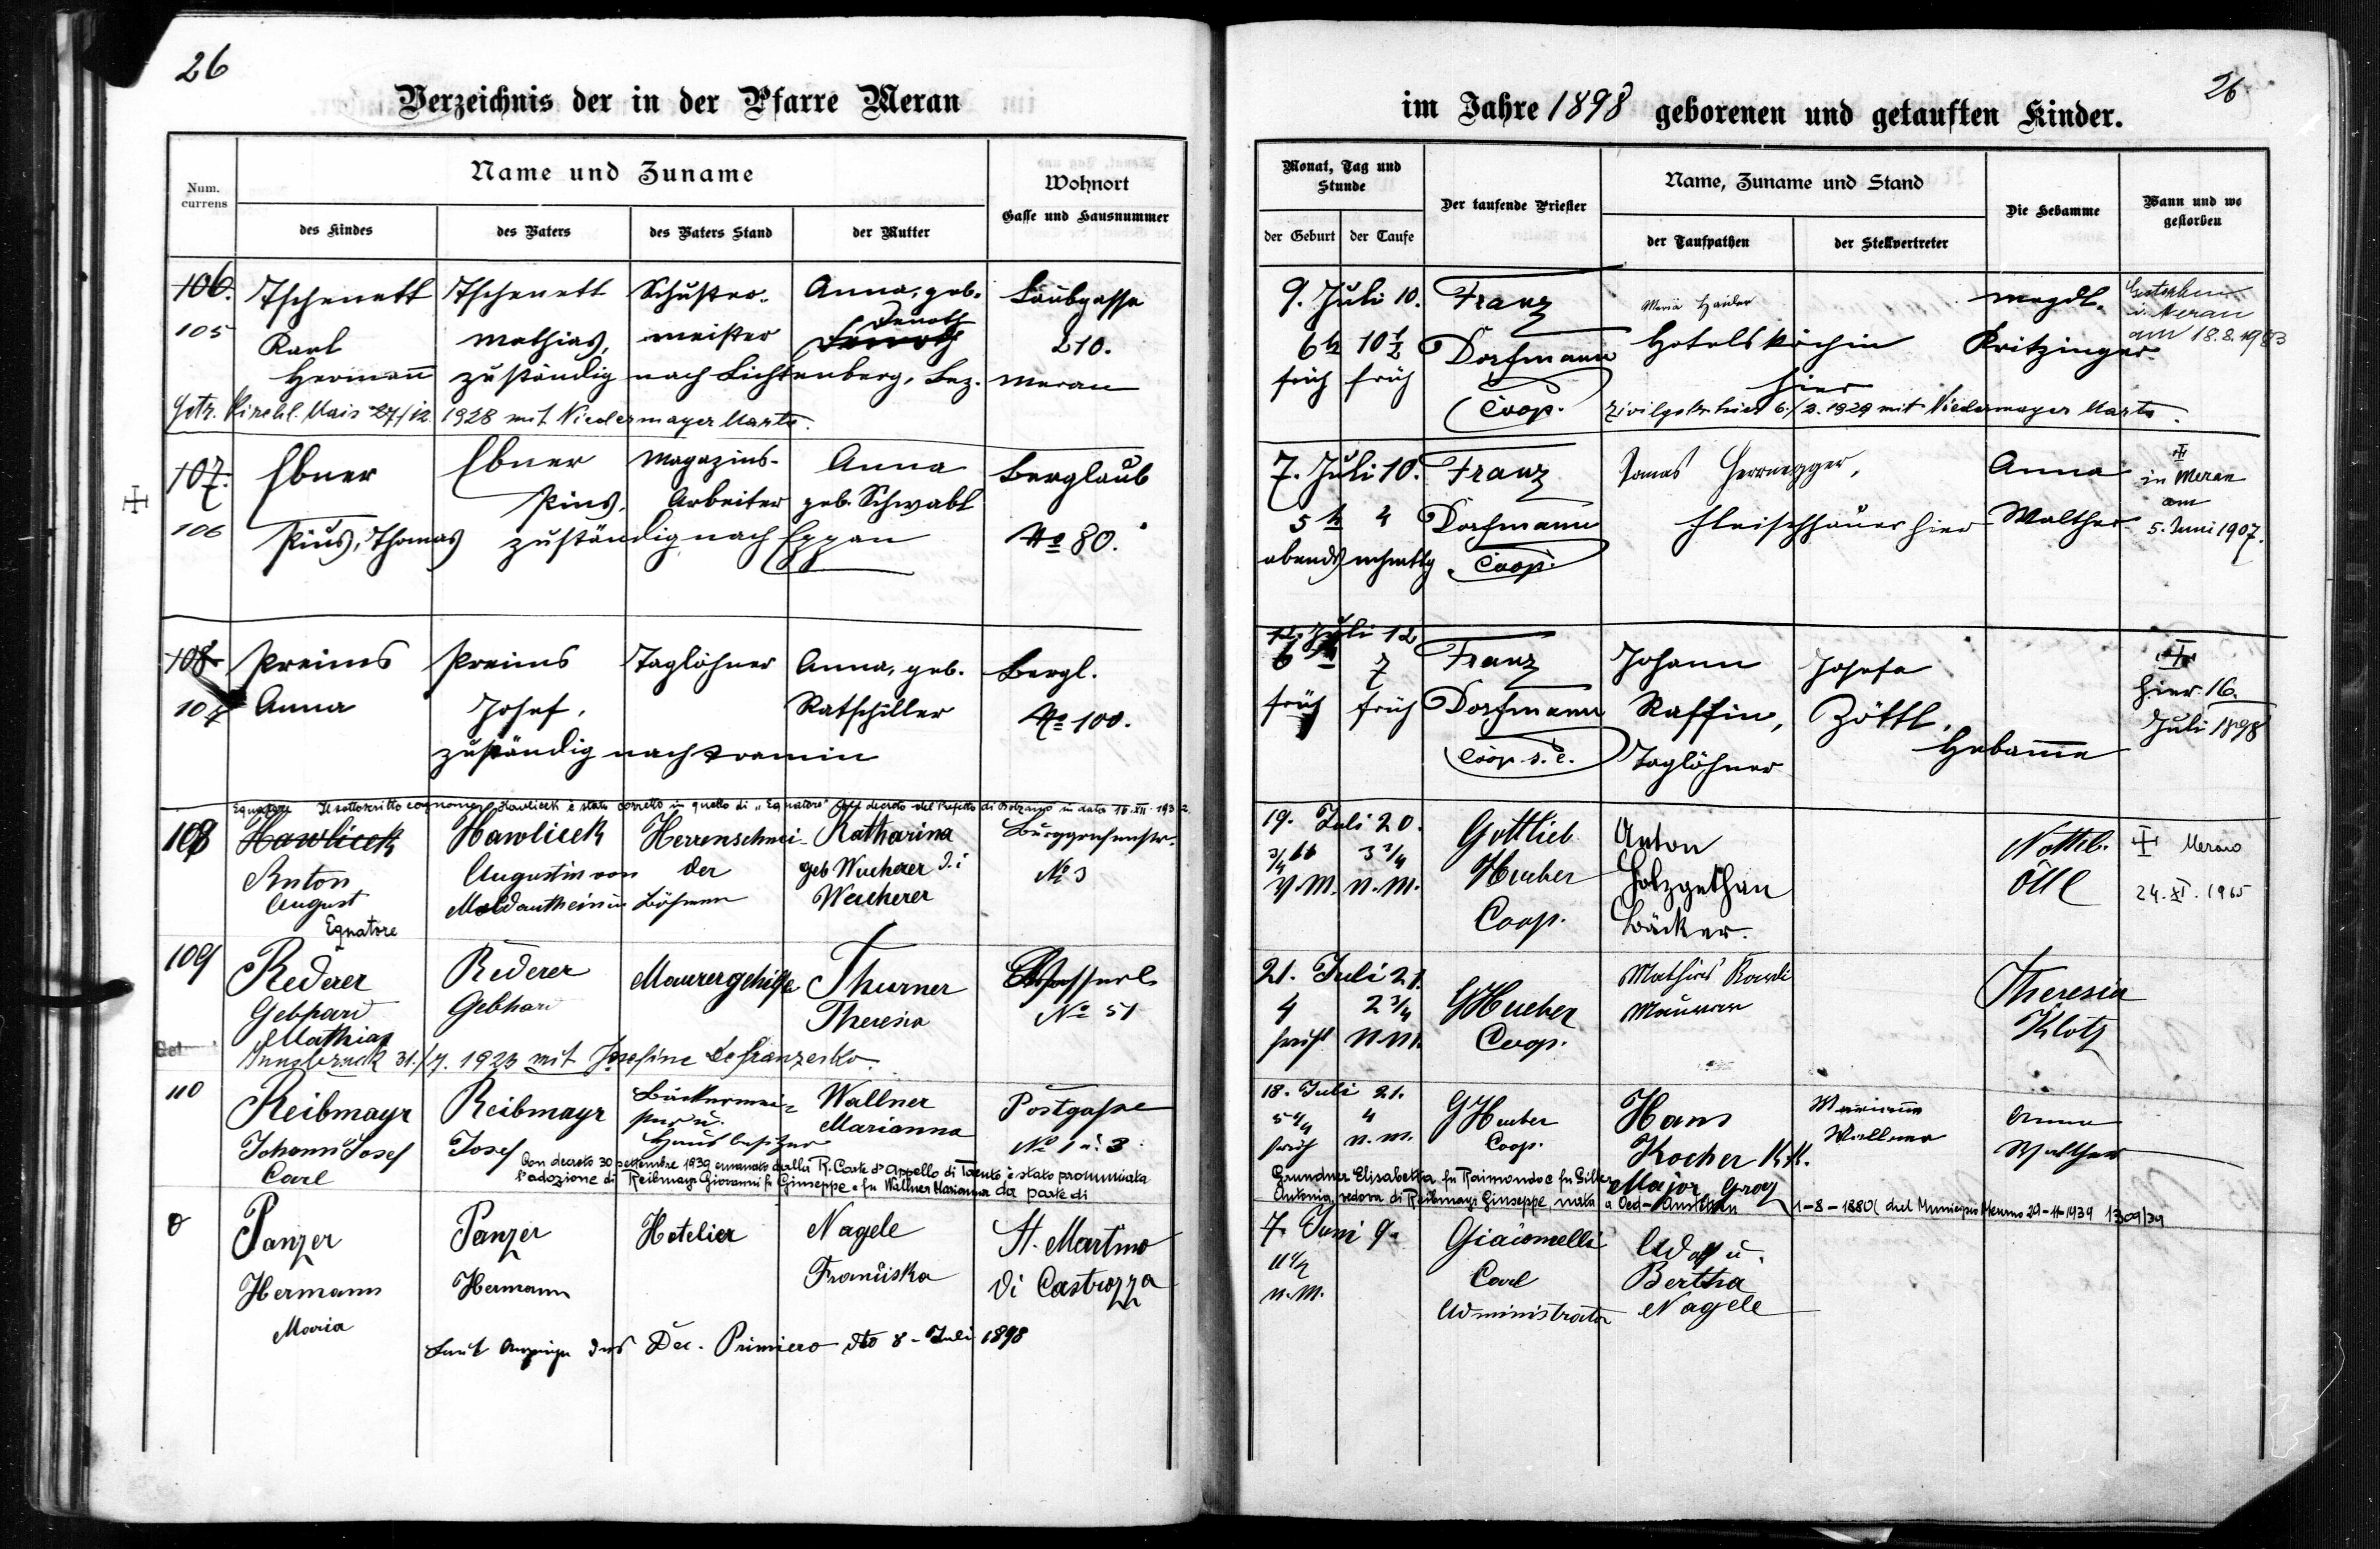 26
Verzeichnis der in der Pfarre Meran
Num. currens
Name und Zuname
des Kindes
des Vaters
des Vaters Stand
der Mutter
Wohnort
Gasse und Hausnummer
106.
105
Tschenett
Karl
Hermann
Tschenett
Mathias,
Schuster-
meister
Anna, geb.
Laubgasse
210.
zuständig nach Lichtenberg, Bez. Meran
Getr. kirchl. Mais 27/12. 1928 mit Niedermayer Marta.
107.
106
Ebner
Pius, Thomas
Ebner
Pius,
Magazins-
Arbeiter
Anna
geb. Schwabl
Berglaub
No 80.
zuständig nach Eppan
108
107
Preims
Anna
Preims
Josef,
Taglöhner
Anna, geb.
Ratschiller
Bergl.
No 100.
zuständig nach Tramin
Egnatore Il sottoscritto cognome Hawlicek è stato corretto in quello di "Egnatore" decreto del Prefetto di Bolzano in data 16.XII.193
108
Hawlicek
Anton
August
Egnatore
Hawlicek
Augustin von
Moldauthein in Böhmen
Herrenschnei-
der
Katharina
geb Wucherer d.i
Weucherer
Burggrafenstr.
No 3
109
Rederer
Gebhard
Mathias
Rederer
Gebhard
Maurergehilfe
Thurner
Theresia
No 51
Innsbruck 31./7. 1923 mit Josefine Defranzesko.
110
Reibmayr
Johann Josef
Carl
Reibmayr
Josef
Bäckermei-
ster u.
Hausbesitzer
Wallner
Marianna
Postgasse
No 1 u. 3
Con decreto 30 settembre 1939 emanato dalla R. Corte d'Appello di Trento è stato pronunciata
l'adozione di Reibmayr Giovanni fu Giuseppe e fu Wallner Marianna da parte di
0
Panzer
Hermann
Maria
Panzer
Hermann
Hotelier
Nagele
Franziska
St. Martino
di Castrozza
Laut Anzeige des Dec. Primiero dto 8. Juli 1898
26
im Jahre 1898 geborenen und getauften Kinder.
Monat, Tag und Stunde
der Geburt
der Taufe
Der taufende Priester
Name, Zuname und Stand
der Taufpathen
der Stellvertreter
Die Hebamme
Wann und wo gestorben
9. Juli 10.
6 h 10 1/2
früh früh
Franz
Dorfmann
Coop.
Maria Haider
Hotelsköchin
hier
Magdl.
Pritzinger
Gestorben
in Meran
am 18.8.1983
Zivilgetr. hier 6./2. 1929 mit Niedermayer Marta.
7. Juli 10.
5 h 4
abends nchmttg
Franz
Dorfmann
Coop.
Tomas Herrnegger,
Fleischhauer hier
Anna
Walther
in Meran
am
5. Juni 1907.
12. Juli 12
6 7
früh früh
Franz
Dorfmann
Coop. s. e.
Johann
Raffin,
Taglöhner
Josefa
Zöttl,
Hebamme
hier 16.
Juli 1898
19. Juli 20.
3/4 3 3/4
V.M. N.M.
Gottlieb
Hueber
Coop.
Anton
Holzgethan
Bäcker.
Nothb.
Öttl
Merano
24. XI. 1965
21. Juli 21.
4 2 3/4
früh N.M.
GHueber
Coop.
Mathias
Maurer
Theresia
Klotz
18. Juli 21.
5 1/4 4
früh N.M.
GHueber
Coop.
Hans
Kocher K.K.
Major Graz
Marianna
Wallner
Anna
Walther
Grundner Elisabetta fu Raimondo e fu
Antonia, vedova di Reibmayr Giuseppe, nata a Oed- 1-8-1880 del Municipio Merano 29-11-1939 1309/39
7. Juni 9.
11 1/2
N.M.
Giacomelli
Carl
Administrator
Adolf u.
Bertha
Nagele